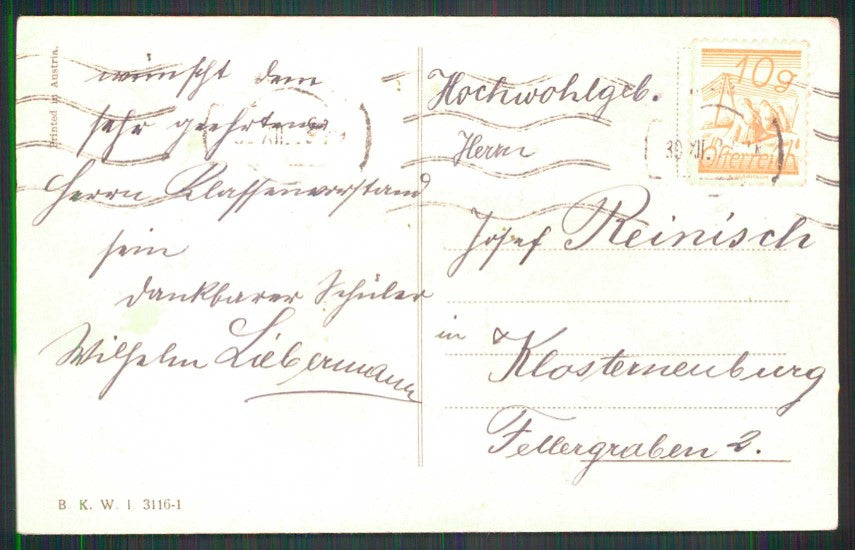 Printed in Austria.
wünscht dem
sehr geehrten
Herrn Klassenvorstand
sein
dankbarer Schüler
Wilhelm Liebermann
B. K. W. I. 3116-1
10g
Österreich
30 XII.
Hochwohlgeb.
Herrn
Josef Reinisch
in
Klosterneuburg
Fellergraben 2.